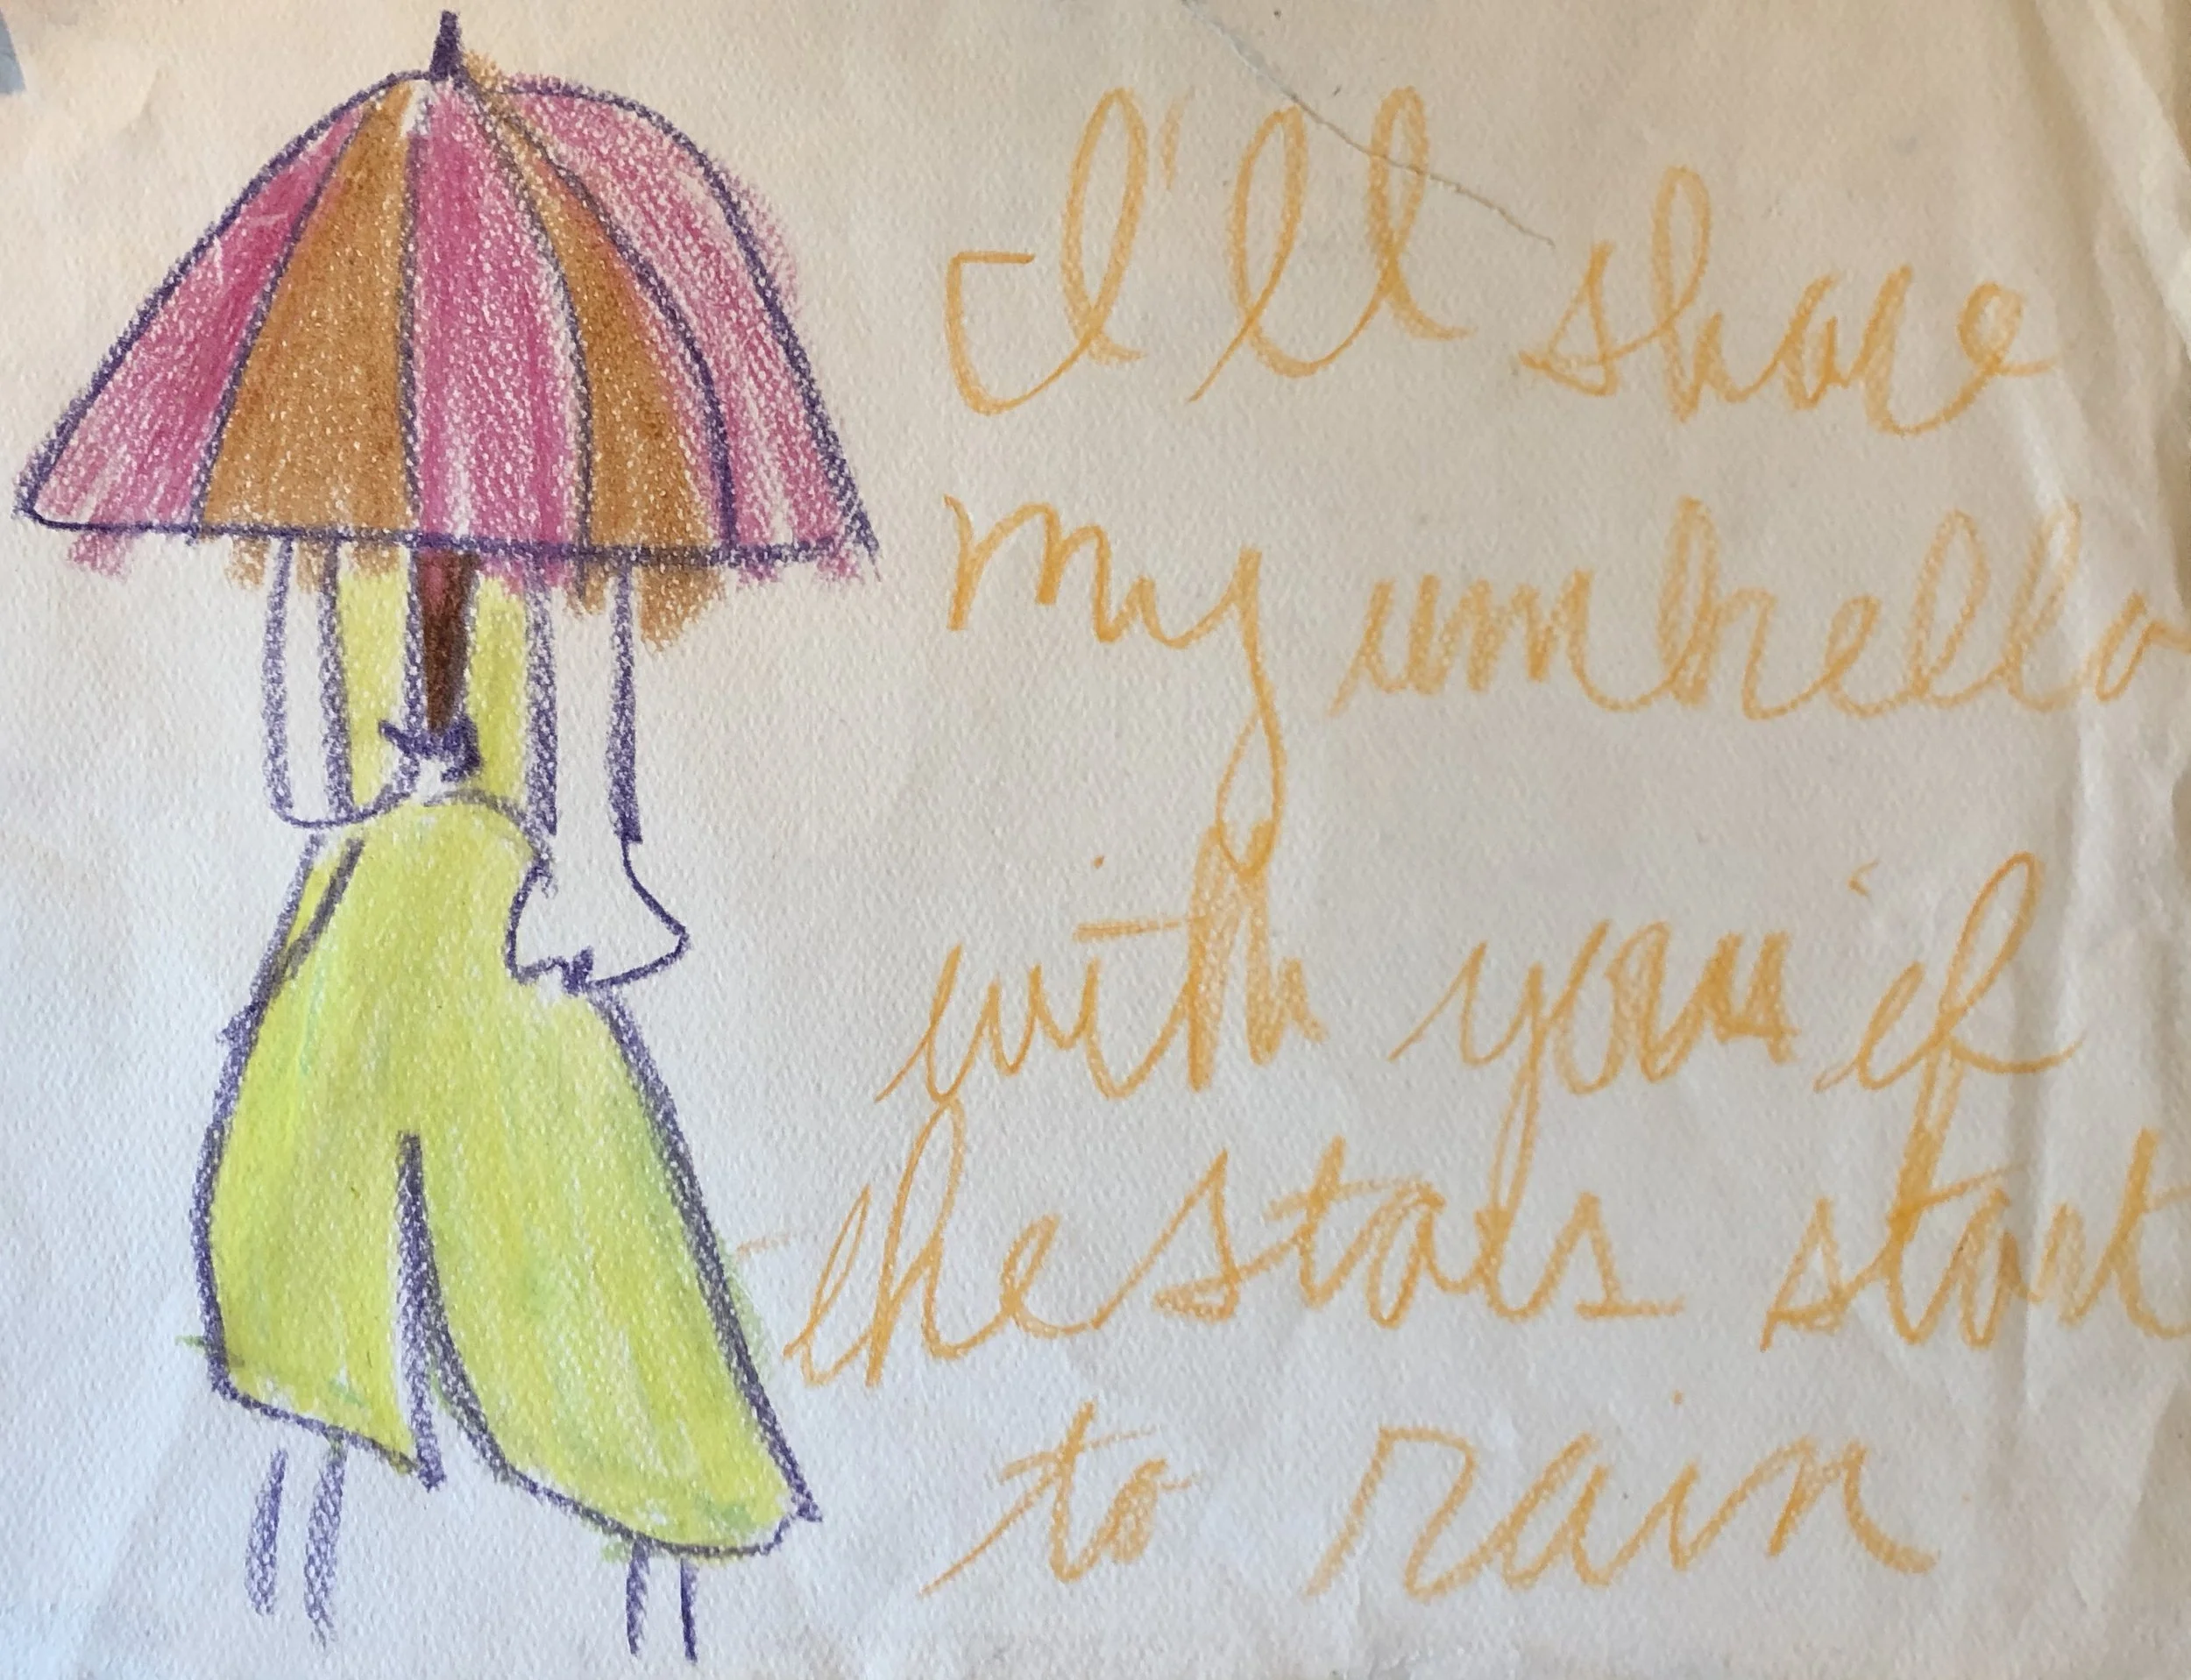 I'll share
my umbrella
with you if
the stars start
to rain